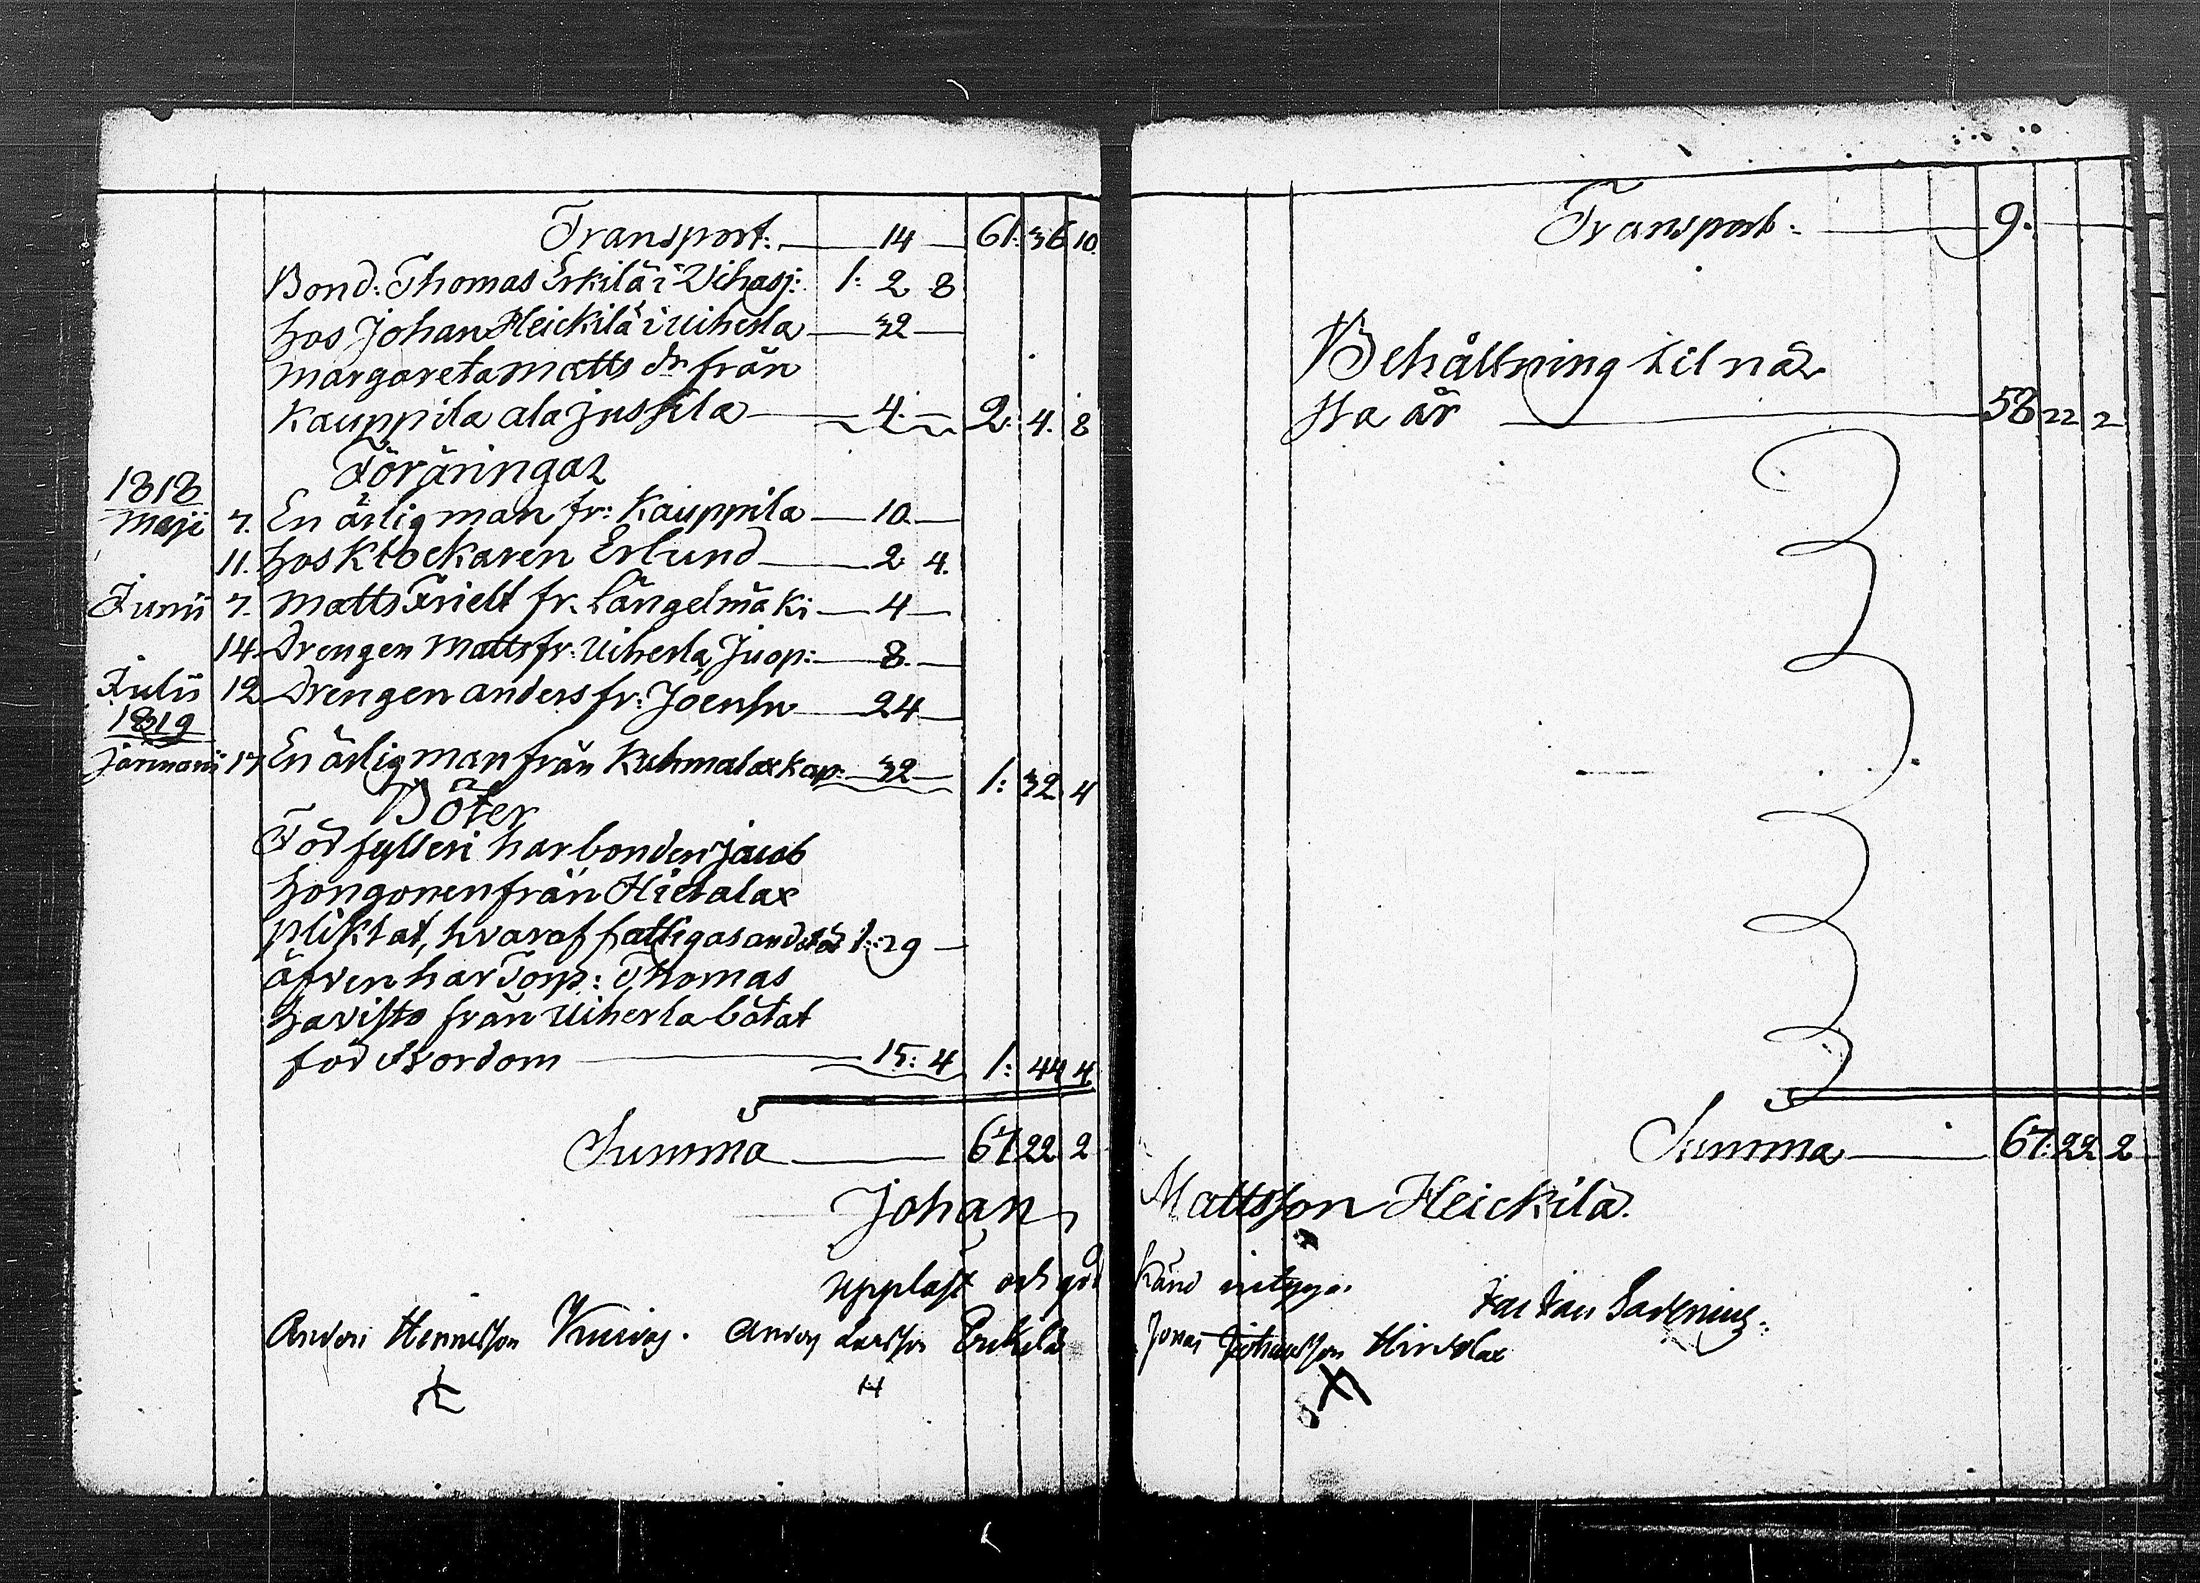 Transport: 14 61: 36 10.
Bond: Thomas Erkilä i Vihasj: 1: 2 8
hos Johan Heickilä i Uiherla 32
margareta matts dr från
Kauppila ala jussila 4. 2: 4. 8
Föräringar
1818
Maji 7. En ärlig man fr: Kauppila 10.
11. hos Klockaren Erlund 2 4.
Junii 7. matts Frielt fr. Längelmäki 4
14. Drengen Matts fr: Uiherla Juop: 8.
Julii 12 Drengen anders fr: Joensu 24
1819
Januarii 17 En ärlig man från Kuhmalax kap: 32 1: 32 4
Böter
För fylleri har bonden jacob
hongonen från Hietalax
pliktat, hvaraf fattigas andel är 1: 29
äfven har Torp: Thomas
havisto från Uiherla bötat
för Hordom 15: 4 1: 44 4
Summa 67 22 2
Johan
Uppläst och god
Anders Larsson Erkilä
Transport: 9.
Behållning til näs
sta år 58 22 2
Summa 67: 22 2
Mattsson Heickilä.
känd intyga
Jonas Johansson Hietalax